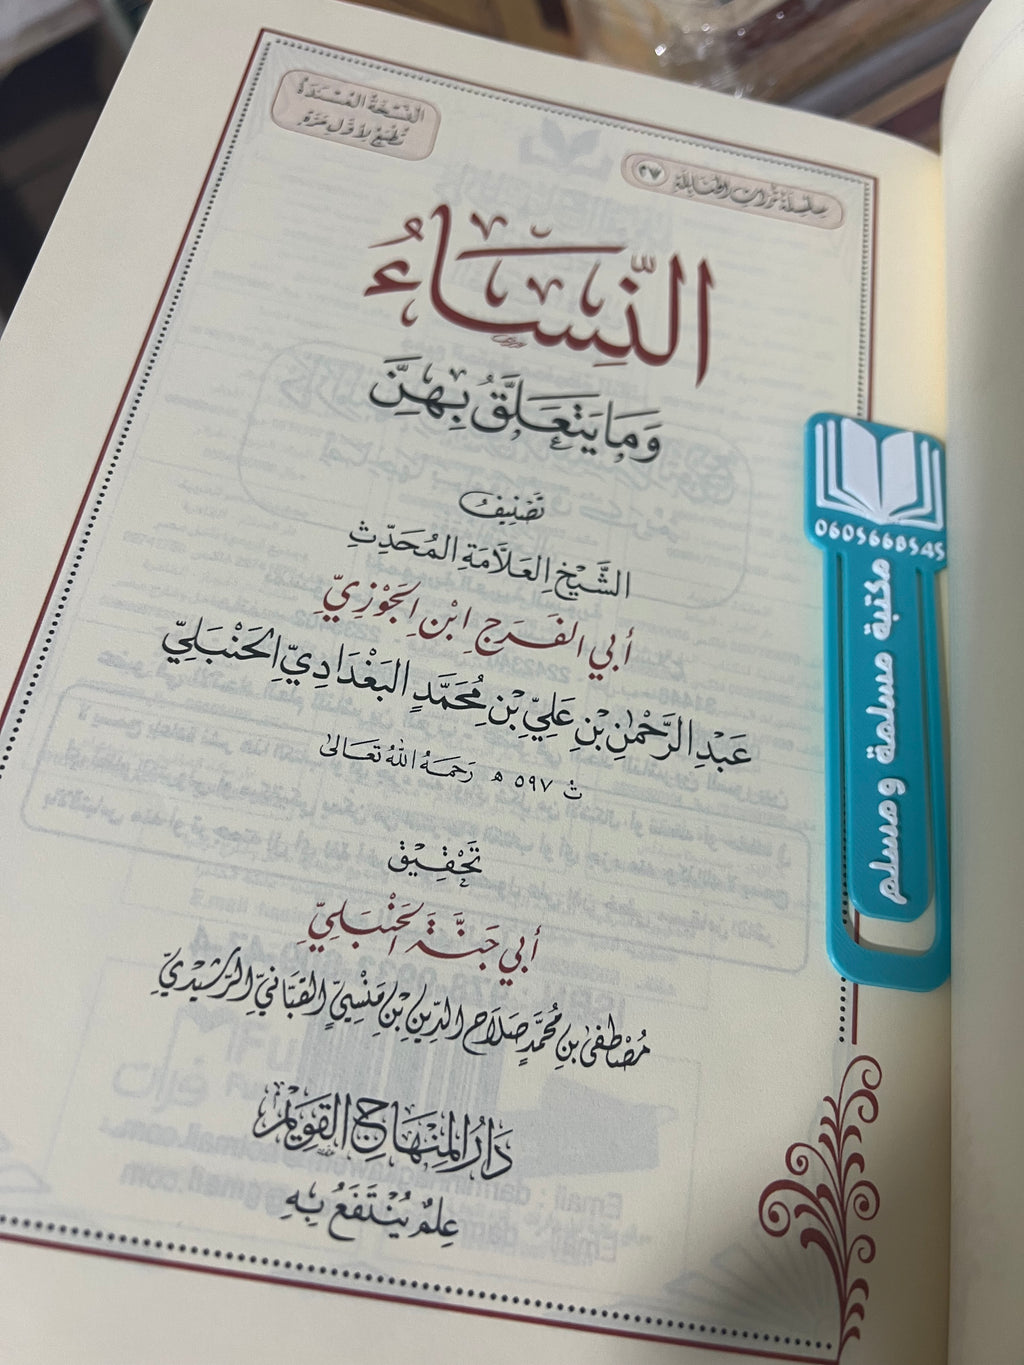 سِلْسِلَةُ تُرَاثِ الحَنَابِلَةِ ٢٧
النُّسْخَةُ المُسْنَدَةُ
تُطْبَعُ لِأَوَّلِ مَرَّةٍ
النِّسَاءُ
وَمَا يَتَعَلَّقُ بِهِنَّ
تَصْنِيفُ
الشَّيْخِ العَلَّامَةِ المُحَدِّثِ
أَبِي الفَرَجِ ابْنِ الجَوْزِيِّ
عَبْدِ الرَّحْمٰنِ بْنِ عَلِيِّ بْنِ مُحَمَّدٍ البَغْدَادِيِّ الحَنْبَلِيِّ
تُ ٥٩٧ هـ رَحِمَهُ اللهُ تَعَالَى
تَحْقِيق
أَبِي جَنَّةَ الحَنْبَلِيِّ
مُصْطَفَى بْنِ مُحَمَّدٍ صَلَاحِ الدِّينِ بْنِ مَنْسِيٍّ القَبَّانِيِّ الرَّشِيدِيِّ
دَارُ المِنْهَاجِ القَوِيْمِ
عِلْمٌ يُنْتَفَعُ بِهِ
0605668545
مكتبة مسلمة ومسلم